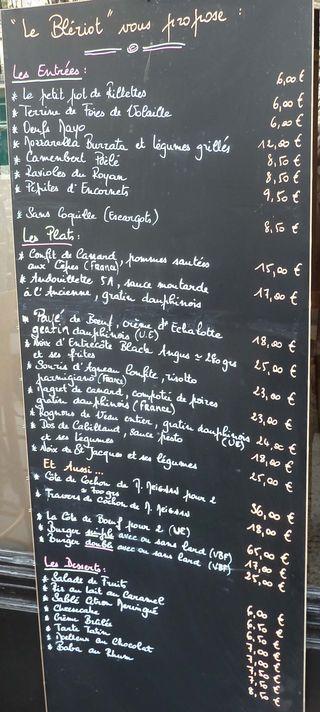 "Le Blériot" vous propose :
Les Entrées :
* Le petit pot de Rillettes 6,00 €
* Terrine de Foies de Volaille 6,00 €
* Oeufs Mayo 6,00 €
* Mozzarella Burrata et légumes grillés 12,00 €
* Camembert Poêlé 8,50 €
* Ravioles du Royan 8,50 €
* Pépites d'Encornets 9,50 €
* Sans Coquille (Escargots) 8,50 €
Les Plats :
* Confit de Canard, pommes sautées
aux Cèpes (France) 15,00 €
* Andouillette 5A, sauce moutarde
à l'Ancienne, gratin dauphinois 17,00 €
* Pavé de Boeuf, crème d'Echalotte
gratin dauphinois (U.E) 18,00 €
* Noix d'Entrecôte Black Angus ≈ 280 grs
et ses frites 25,00 €
* Souris d'Agneau Confite, risotto
parmigiano (France) 23,00 €
* Magret de canard, compotée de poires
gratin dauphinois (France) 23,00 €
* Rognons de Veau entier, gratin dauphinois (UE) 24,00 €
* Dos de Cabillaud, sauce pesto
et ses légumes 18,00 €
* Noix de St Jacques et ses légumes 25,00 €
Et Aussi ...
* Côte de Cochon de M. 2
≈ 700 grs 36,00 €
* Travers de Cochon de M. 18,00 €
* La Côte de Boeuf pour 2 (UE) 65,00 €
* Burger simple avec ou sans lard (VBF) 17,00 €
* Burger double avec ou sans lard (VBF) 25,00 €
Les Desserts :
* Salade de Fruits 6,00 €
* Riz au lait au Caramel 6,50 €
* Sablé Citron Meringué 6,50 €
* Cheesecake 7,00 €
* Crème Brûlée 7,00 €
* Tarte Tatin 7,50 €
* Moelleux au Chocolat 7,50 €
* Baba au Rhum 8,50 €